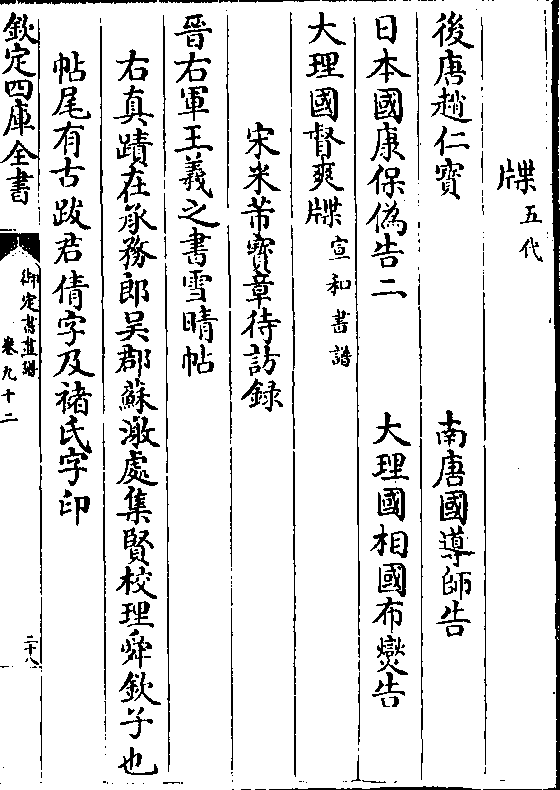 牒五代
後唐趙仁寳　南唐國導師告
日本國康保偽告二　大理國相國布燮告
大理國督爽牒宣和書譜
宋米芾寳章待訪録
晉右軍王羲之書雪晴帖
右真蹟在承務郎吴郡蘇澥處集賢校理舜欽子也
帖尾有古跋君倩字及褚氏字印
欽定四庫全書
御定書畫譜
卷九十二
二十八